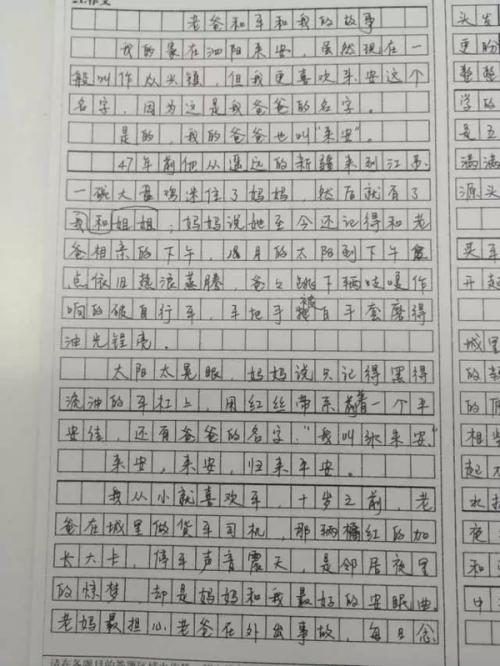 老爸和车和我的故事
我的家在泗阳来安，虽然现在一
般叫作众兴镇，但我更喜欢来安这个
名字，因为这是我爸爸的名字。
是的，我的爸爸也叫“来安”。
47年前他从遥远的新疆来到江苏，
一碗大盘鸡迷住了妈妈，然后就有了
我和姐姐；妈妈说她至今还记得和老
爸相亲的下午，8月的太阳到下午
点依旧热浪蒸腾，爸爸跳下辆吱嘎作
响的破自行车，车把手被白手套磨得
油光锃亮。
太阳太晃眼，妈妈说只记得黑得
流油的车杠上，用红丝带系着一个平
安结，还有爸爸的名字：“我叫张来安。”
来安，来安，归来平安。
我从小就喜欢车，十岁之前，老
爸在城里做货车司机，那辆橘红的加
长大卡，停车声音震天，是邻居夜里
的惊梦，却是妈妈和我最好的安眠曲。
老妈最担心老爸在外出事故，每日念
头发
更盼
整整
学的
是五
满满
源头
买车
开起
城里
的
的
相
起
水
和
中